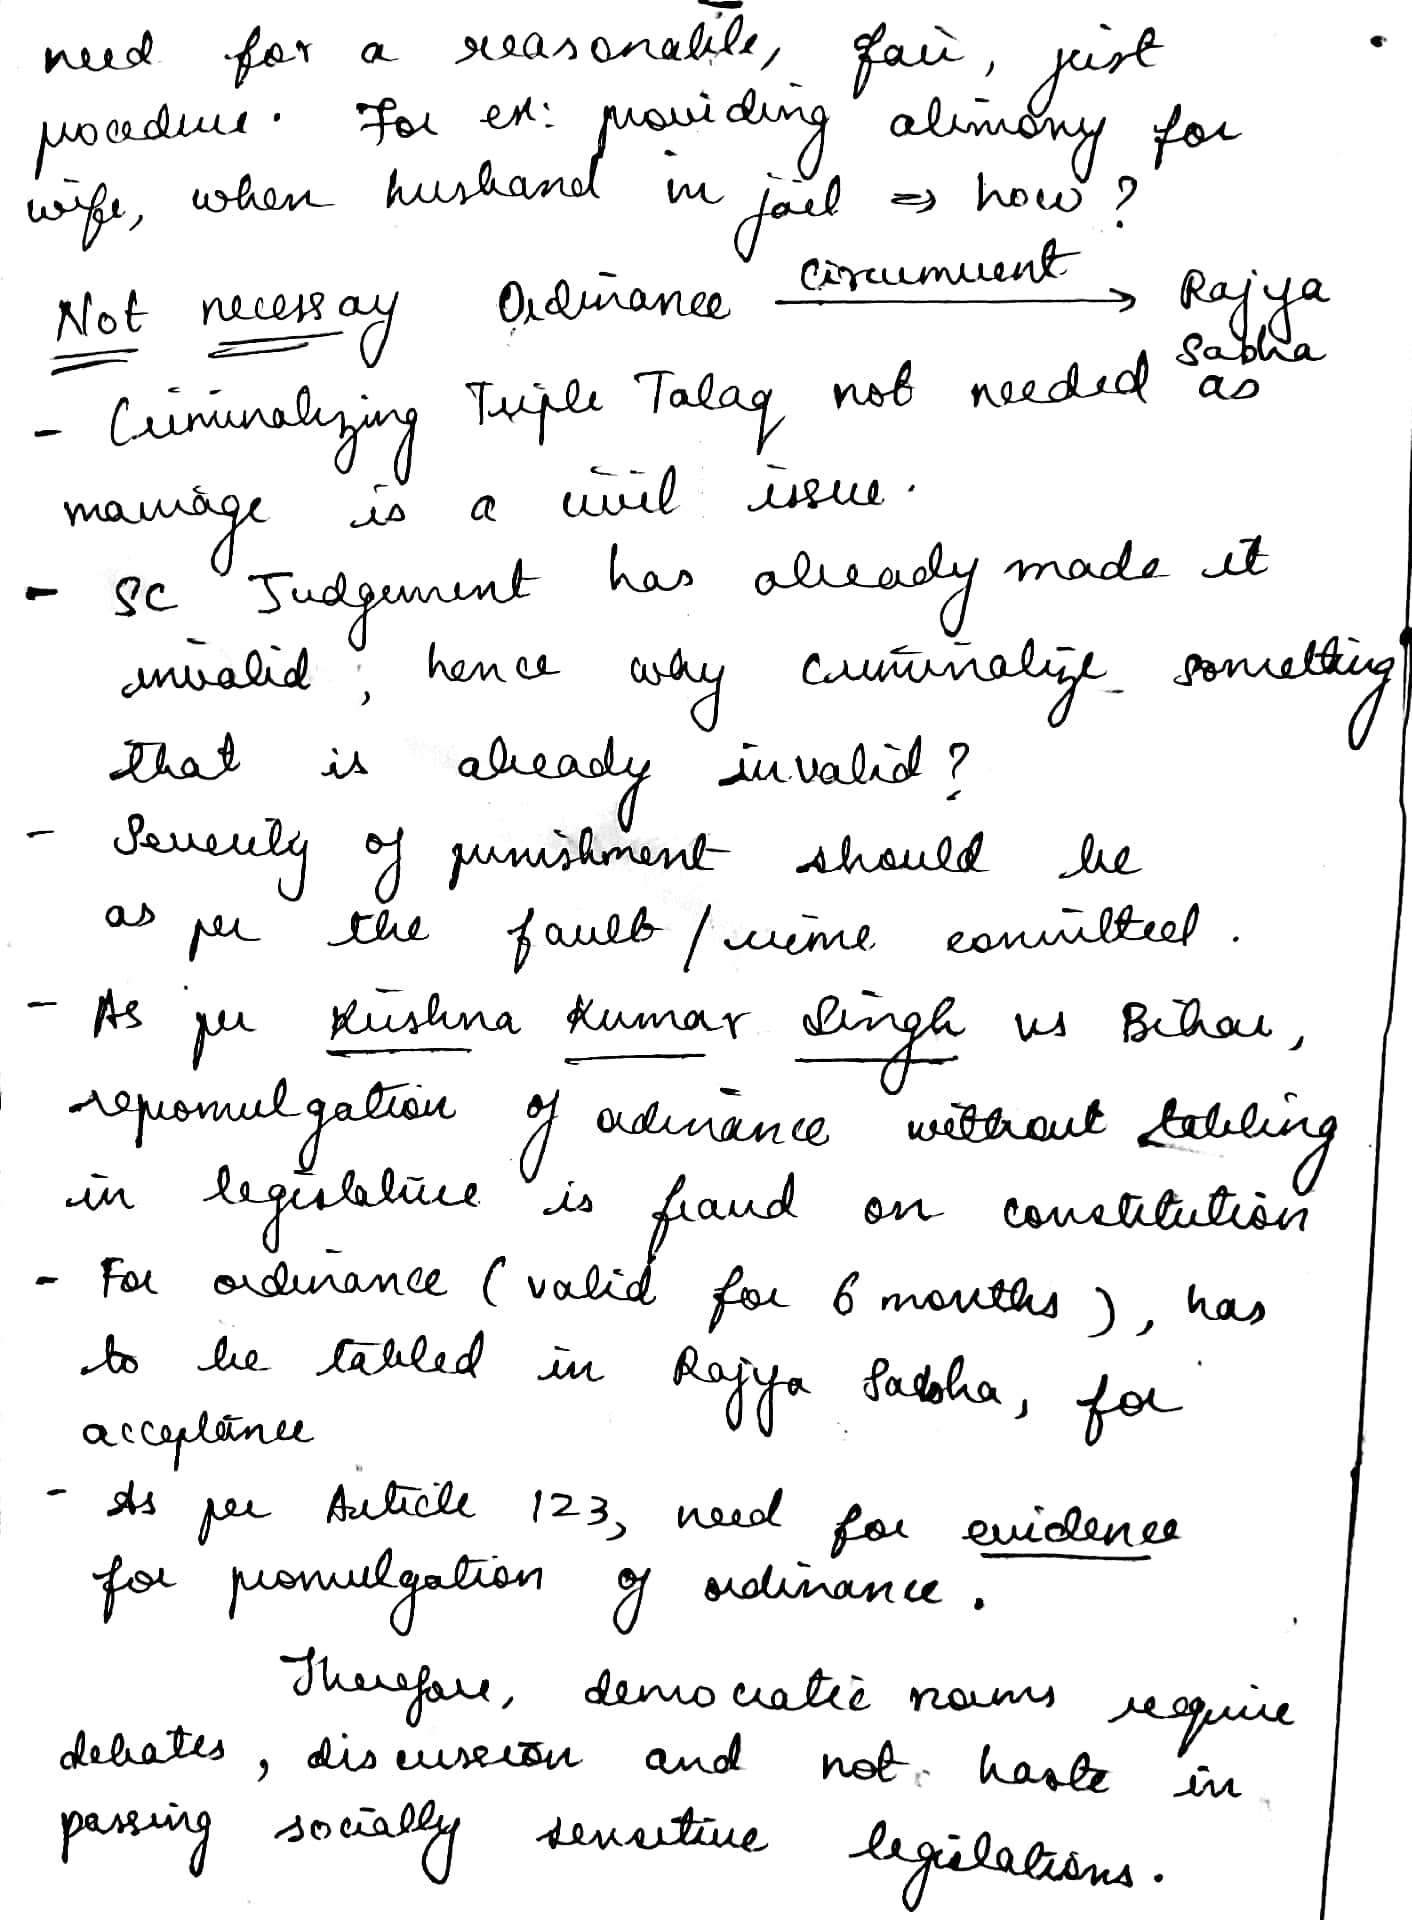 need for a reasonable, fair, just
procedure. For ex: providing alimony for
wife, when husband in jail ⇒ how?
Not necessay Ordinance circumvent → Rajya Sabha
- Criminalizing Triple Talaq not needed as
marriage is a civil issue.
- SC Judgement has already made it
invalid; hence why criminalize something
that is already invalid?
- Severity of punishment should be
as per the fault/crime committed.
- As per Krishna Kumar Singh vs Bihar,
repromulgation of ordinance without tabling
in legislature is fraud on constitution
- For ordinance (valid for 6 months), has
to be tabled in Rajya Sabha, for
acceptance
- As per Article 123, need for evidence
for promulgation of ordinance.
Therefore, democratic norms require
debates, discussion and not haste in
passing socially sensitive legislations.